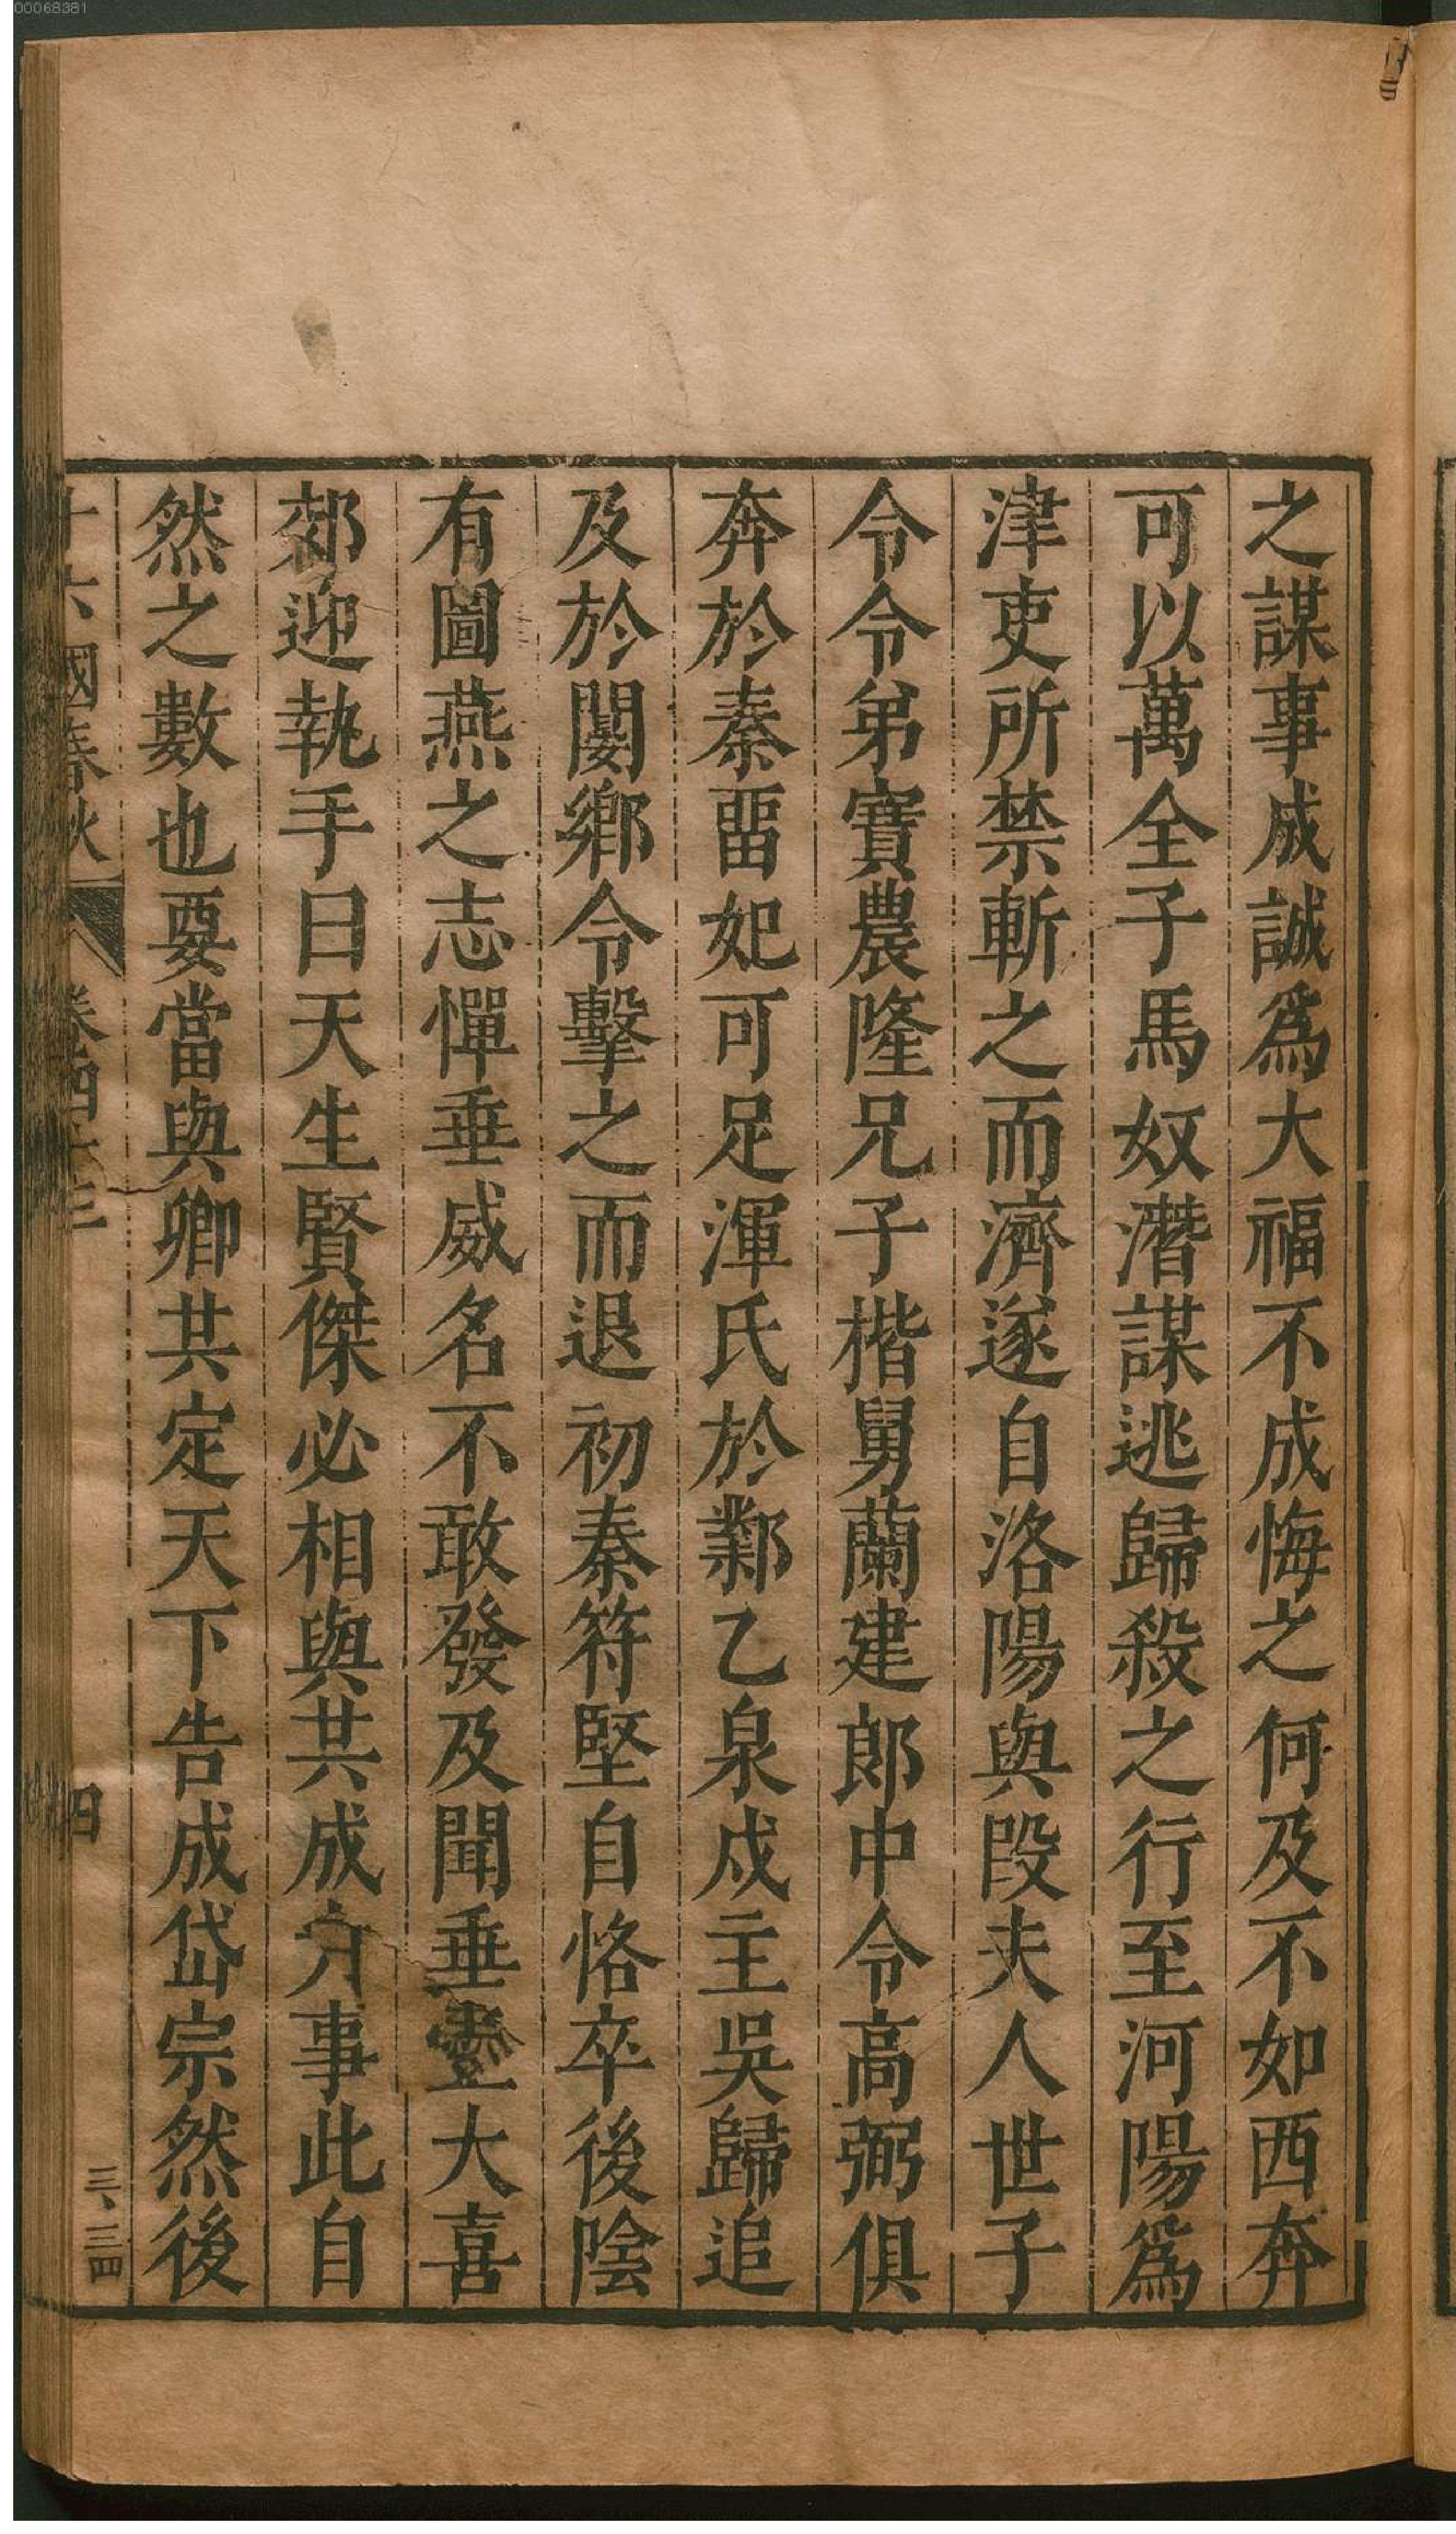 00068381
之謀事成誠爲大福不成悔之何及不如西奔
可以萬全子馬奴潛謀逃歸殺之行至河陽爲
津吏所禁斬之而濟遂自洛陽與段夫人世子
令令弟寶農隆兄子楷舅蘭建郎中令高弼俱
奔於秦畱妃可足渾氏於鄴乙泉戍主吳歸追
及於閿鄉令擊之而退初秦符堅自恪卒後陰
有圖燕之志憚垂威名不敢發及聞垂至大喜
郊迎執手曰天生賢傑必相與共成大事此自
然之數也要當與卿共定天下告成岱宗然後
十六國春秋 卷四十三 四 三、三四